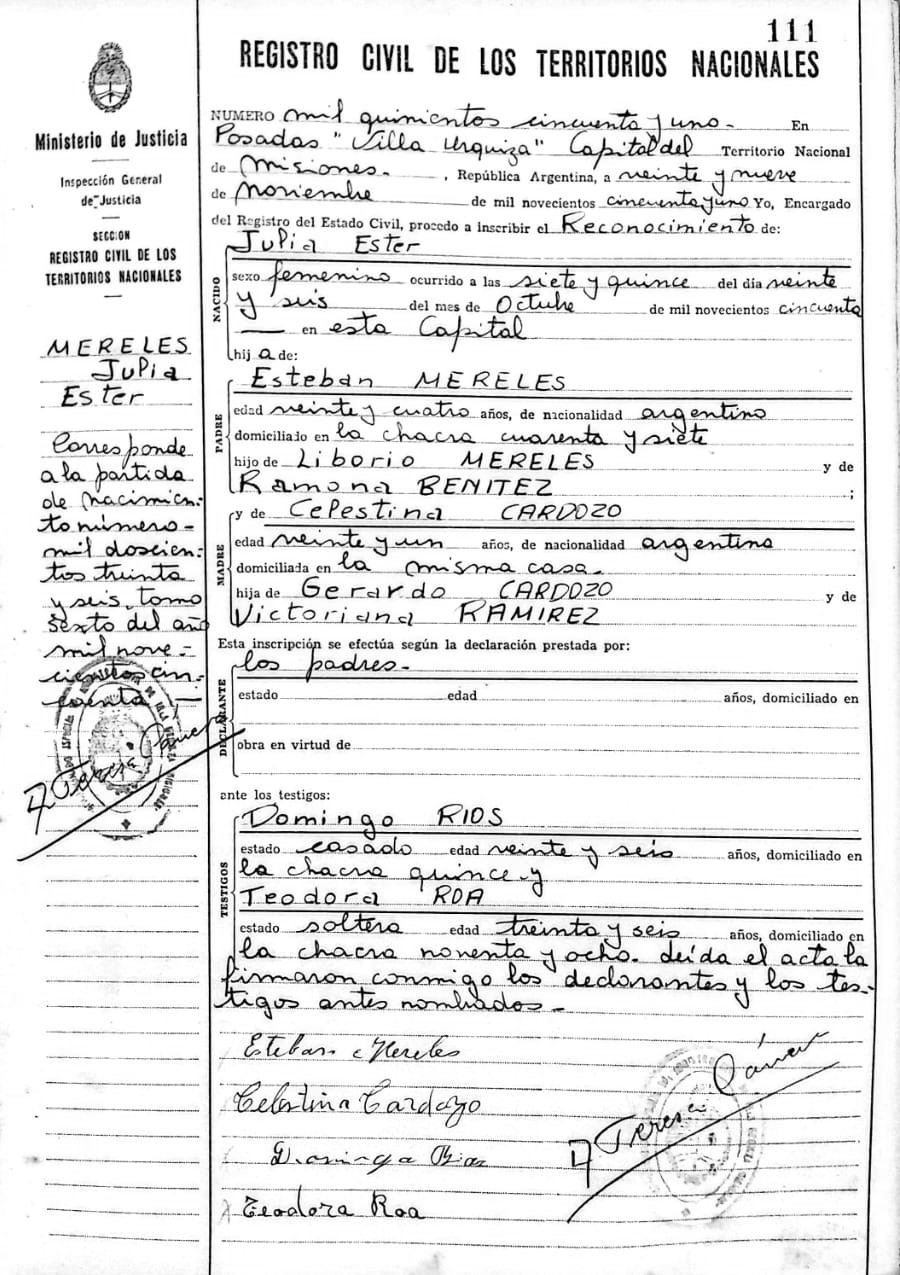 111
REGISTRO CIVIL DE LOS TERRITORIOS NACIONALES
Ministerio de Justicia
Inspección General
de Justicia
SECCION
REGISTRO CIVIL DE LOS
TERRITORIOS NACIONALES
MERELES
Julia
Ester
Corresponde
a la partida
de nacimien-
to número-
mil doscien-
tos treinta
y seis, tomo
sexto del año
mil nove-
cientos cin-
cuenta-
NUMERO mil quinientos cincuenta y uno- En
Posadas "Villa Urquiza" Capital del Territorio Nacional
de Misiones. , República Argentina, a veinte y nueve
de Noviembre de mil novecientos cincuenta y uno Yo, Encargado
del Registro del Estado Civil, procedo a inscribir el Reconocimiento de:
NACIDO
Julia Ester
sexo femenino ocurrido a las siete y quince del día veinte
y seis del mes de Octubre de mil novecientos cincuenta
— en esta Capital
hij a de:
PADRE
Esteban MERELES
edad veinte y cuatro años, de nacionalidad argentino
domiciliado en la chacra cuarenta y siete
hijo de Liborio MERELES y de
Ramona BENITEZ ;
MADRE
y de Celestina CARDOZO
edad veinte y un años, de nacionalidad argentina
domiciliada en la misma casa.
hija de Gerardo CARDOZO y de
Victoriana RAMIREZ
Esta inscripción se efectúa según la declaración prestada por:
DECLARANTE
los padres-
estado edad años, domiciliado en
obra en virtud de
ante los testigos:
TESTIGOS
Domingo RIOS
estado casado edad veinte y seis años, domiciliado en
la chacra quince y
Teodora ROA
estado soltera edad treinta y seis años, domiciliado en
la chacra noventa y ocho. Leída el acta la
firmaron conmigo los declarantes y los tes-
tigos antes nombrados-
Esteban Mereles
Celestina Cardozo
Teresa
Teodora Roa